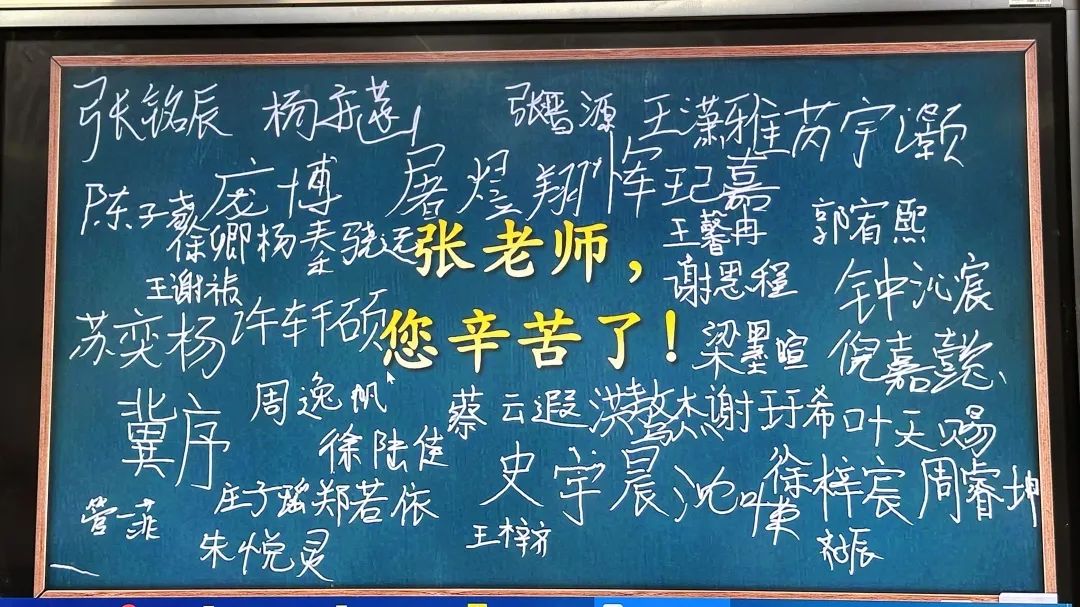 张铭辰 杨亦 张晋源 王潇雅 芮宇灏
陈子 庞博 屠煜翔 恽玘嘉
徐卿杨 骁远 王馨冉 郭宥熙
王谢祯 谢恩程 钟沁宸
张老师，
苏奕杨 许轩硕 梁墨暄 倪嘉懿
您辛苦了！
冀序 周逸帆 蔡云遐 洪骜杰 谢玗希 叶天赐
徐陆佳 史宇晨 沈 徐梓宸 周睿坤
管一菲 庄子瑶 郑若依
朱悦灵 王梓齐 辰